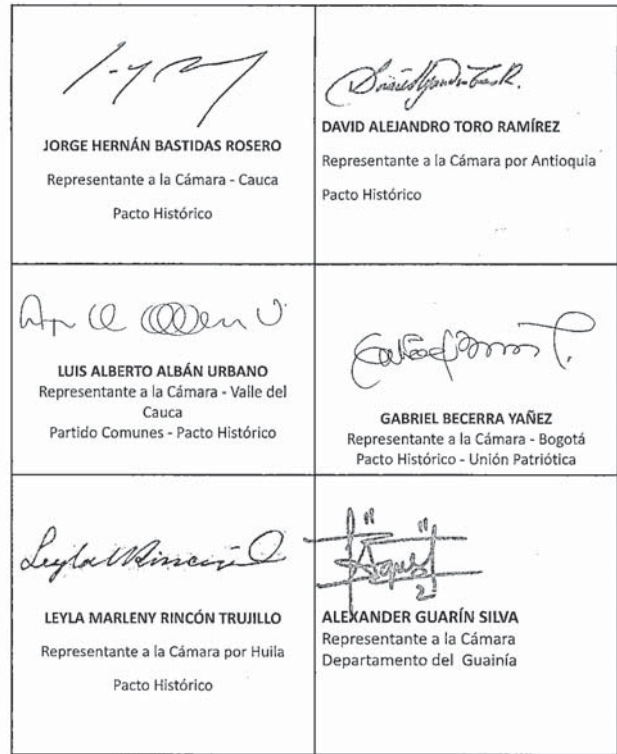 JORGE HERNÁN BASTIDAS ROSERO
Representante a la Cámara - Cauca
Pacto Histórico
DAVID ALEJANDRO TORO RAMÍREZ
Representante a la Cámara por Antioquia
Pacto Histórico
LUIS ALBERTO ALBÁN URBANO
Representante a la Cámara - Valle del
Cauca
Partido Comunes - Pacto Histórico
GABRIEL BECERRA YAÑEZ
Representante a la Cámara - Bogotá
Pacto Histórico - Unión Patriótica
LEYLA MARLENY RINCÓN TRUJILLO
Representante a la Cámara por Huila
Pacto Histórico
ALEXANDER GUARÍN SILVA
Representante a la Cámara
Departamento del Guainía